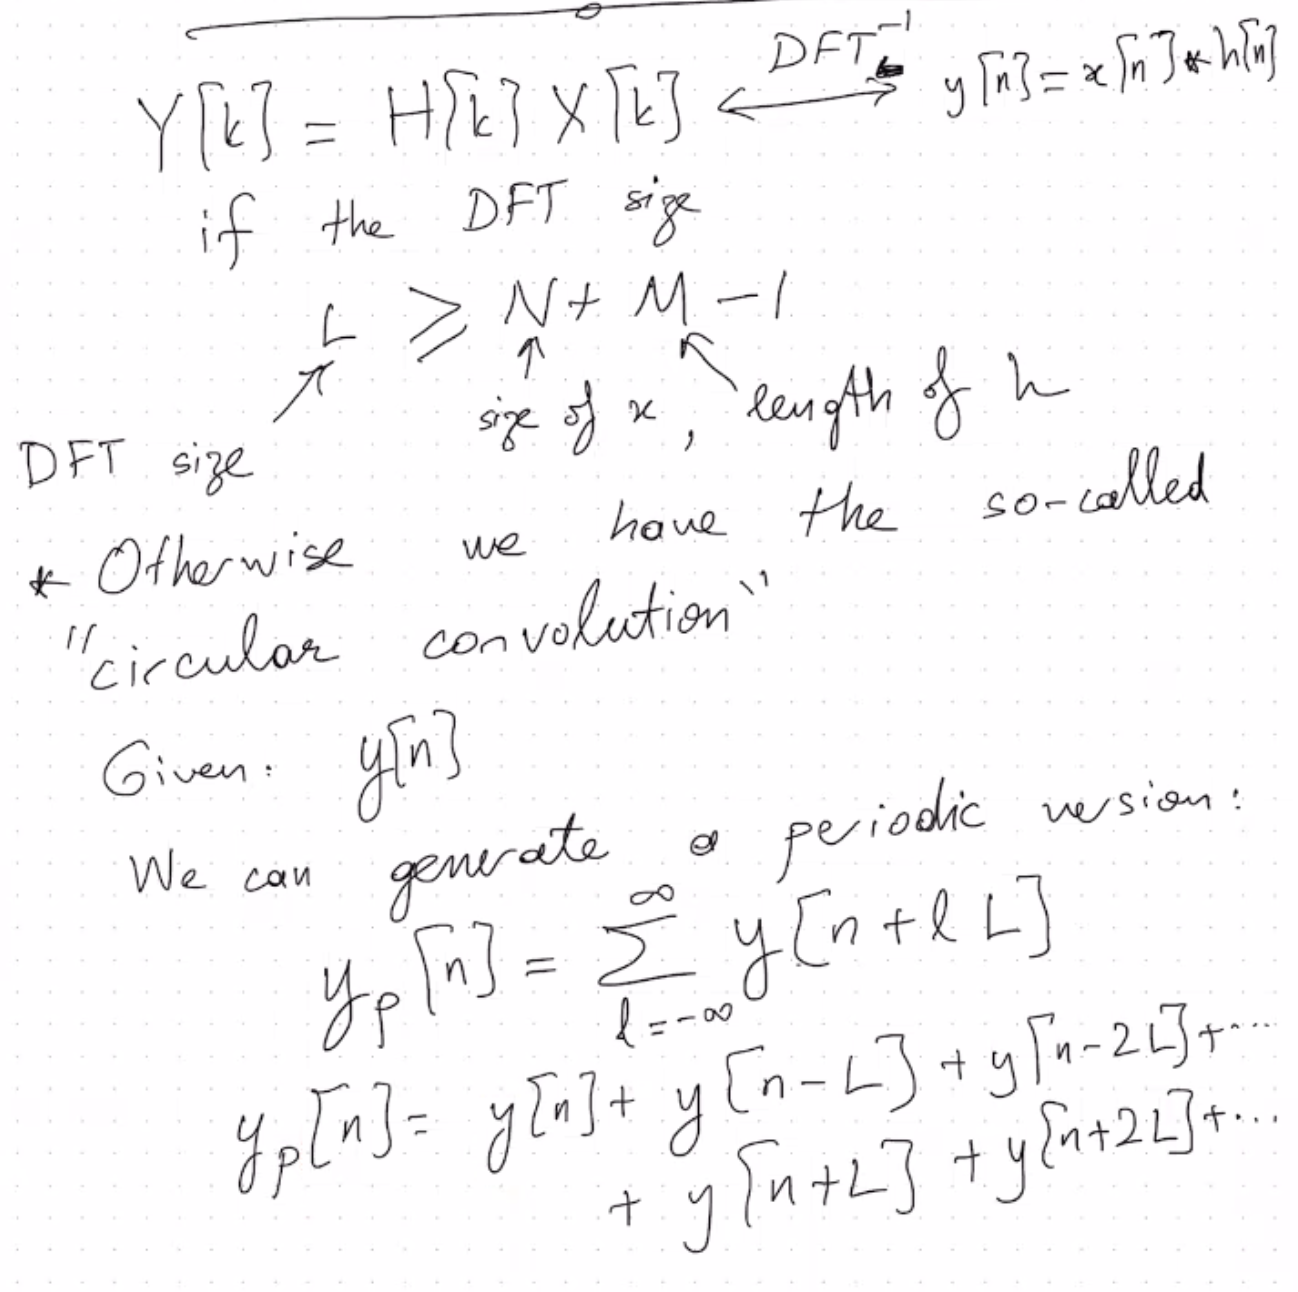 Y[k] = H[k] X[k] ⟷ DFT⁻¹ y[n] = x[n] * h[n]
if the DFT size
L ≥ N + M - 1
DFT size
size of x, length of h
* Otherwise we have the so-called
"circular convolution"
Given: y[n]
We can generate a periodic version:
yₚ[n] = ∑_{l=-∞}^{∞} y[n + l L]
yₚ[n] = y[n] + y[n-L] + y[n-2L] + ....
+ y[n+L] + y[n+2L] + ...